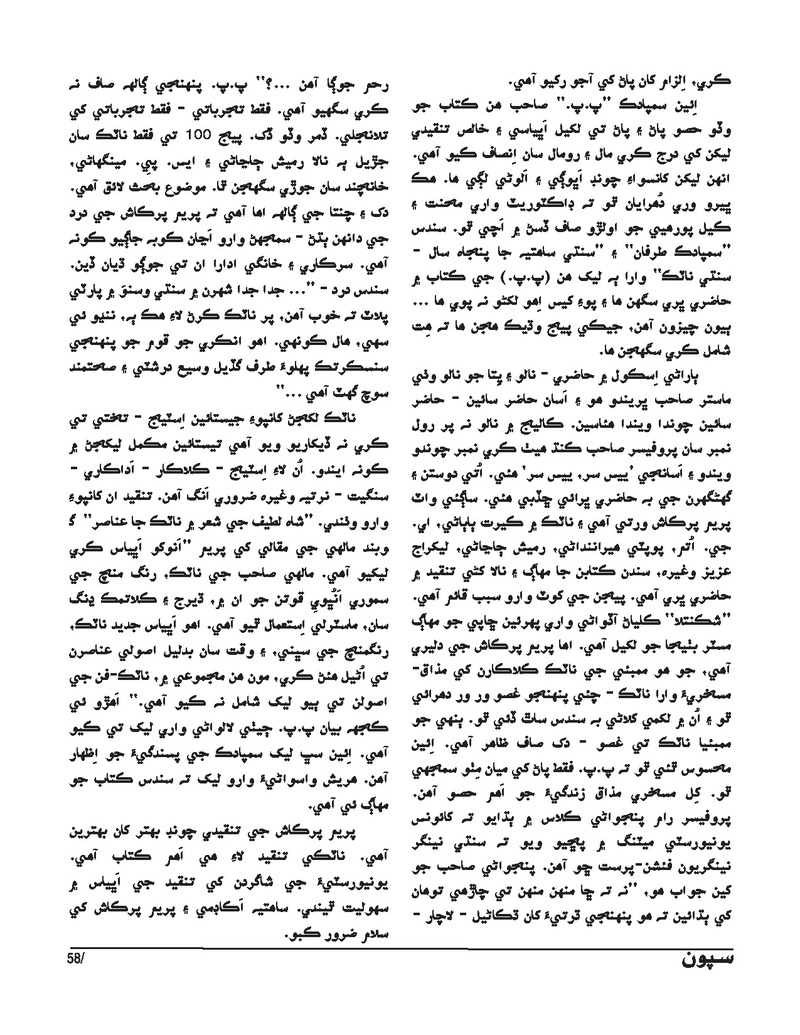 ڪري، اِلزام کان پاڻ کي آجو رکيو آهي.
اِئين سمپادڪ ”پ.پ.“ صاحب هن ڪتاب جو
وڏو حصو پاڻ ۽ پاڻ تي لکيل اَڀياسي ۽ خالص تنقيدي
ليکن کي درج ڪري مال ۽ رومال سان اِنصاف ڪيو آهي.
انهن ليکن کانسواءِ چونڊ اَڀوڳي ۽ اَلوڻي لڳي ها. هڪ
ڀيرو وري دُهرايان ٿو ته ڊاڪٽوريٽ واري محنت ۽
کيل پورهيي جو اولڙو صاف ڏسڻ ۾ اَچي ٿو. سندس
”سمپادڪ طرفان“ ۽ ”سنڌي ساهتيہ جا پنجاه سال -
سنڌي ناٽڪ“ وارا ٻه ليک هن (پ.پ.) جي ڪتاب ۾
حاضري ڀري سگهن ها ۽ پوءِ کيس اِهو لکڻو نه پوي ها ...
ٻيون چيزون آهن، جيڪي پيج وڌيڪ هجن ها ته هِت
شامل ڪري سگهجن ها.
ٻاراڻي اِسڪول ۾ حاضري - نالو ۽ پِتا جو نالو وٺي
ماستر صاحب ڀريندو هو ۽ اَسان حاضر سائين - حاضر
سائين چوندا ويندا هئاسين. ڪاليج ۾ نالو نه پر رول
نمبر سان پروفيسر صاحب ڪنڌ هيٺ ڪري نمبر چوندو
ويندو ۽ اَسانجي ’ييس سر، ييس سر‘ هئي. اُتي دوستن ۽
گهڻگهرن جي به حاضري ڀرائي ڇڏبي هئي. ساڳئي واٽ
پريم پرڪاش ورتي آهي ۽ ناٽڪ ۾ کيرت ٻاٻاڻي، اي.
جي. اُتم، پوپٽي هيراننداڻي، رميش ڇاڇاڻي، ليکراج
عزيز وغيره، سندن ڪتابن جا مهاڳ ۽ نالا کڻي تنقيد ۾
حاضري ڀري آهي. پيجن جي کوٽ وارو سبب قائم آهي.
”شڪنتلا“ ڪلياڻ آڏواڻي واري پهرئين ڇاپي جو مهاڳ
مسٽر بٺيجا جو لکيل آهي. اها پريم پرڪاش جي دليري
آهي، جو هو ممبئي جي ناٽڪ ڪلاڪارن کي مذاق-
مسخريءَ وارا ناٽڪ - چئي پنهنجو غصو ور ور دهرائي
ٿو ۽ اُن ۾ لکمي کلاڻي به سندس ساٿ ڏئي ٿو. ٻنهي جو
ممبئيا ناٽڪ تي غصو - دک صاف ظاهر آهي. اِئين
محسوس ٿئي ٿو ته پ.پ. فقط پاڻ کي ميان مِٺو سمجهي
ٿو. کِل مسخري مذاق زندگيءَ جو اَهم حصو آهن.
پروفيسر رام پنجواڻي ڪلاس ۾ ٻڌايو ته کائونس
يونيورسٽي ميٽنگ ۾ پڇيو ويو ته سنڌي نينگر
نينگريون فئشن-پرست ڇو آهن. پنجواڻي صاحب جو
کين جواب هو، ”نه ته ڇا منهن منهن تي چاڙهي توهان
کي ٻڌائين ته هو پنهنجي ڌرتيءَ کان ڌڪاڻيل - لاچار -
رحم جوڳا آهن ...؟“ پ.پ. پنهنجي ڳالهہ صاف نہ
ڪري سگهيو آهي. فقط تجرباتي - فقط تجرباتي کي
تلانجلي. ڏمر وڏو ڏک. پيج 100 تي فقط ناٽڪ سان
جڙيل ٻه نالا رميش ڇاڇاڻي ۽ ايس. پي. مينگهاڻي،
خانچند سان جوڙي سگهجن ٿا. موضوع بحث لائق آهي.
دک ۽ چنتا جي ڳالهہ اها آهي ته پريم پرڪاش جي درد
جي دانهن ٻڌڻ - سمجهڻ وارو اَڃان ڪوبه جاڳيو ڪونه
آهي. سرڪاري ۽ خانگي ادارا ان تي جوڳو ڌيان ڏين.
سندس درد - ”... جدا جدا شهرن ۾ سنڌي وسنوَ ۾ پارٽي
پلاٽ ته خوب آهن، پر ناٽڪ ڪرڻ لاءِ هڪ به، ننڍو ئي
سهي، هال ڪونهي. اهو انڪري جو قوم جو پنهنجي
سنسڪرتڪ پهلوءَ طرف گڏيل وسيع درشٽي ۽ صحتمند
سوچ گهٽ آهي ...“
ناٽڪ لکجڻ کانپوءِ جيستائين اِسٽيج - تختي تي
ڪري نه ڏيکاريو ويو آهي تيستائين مڪمل ليکجڻ ۾
ڪونه ايندو. اُن لاءِ اِسٽيج - ڪلاڪار - اَداڪاري -
سنگيت - نرتيه وغيره ضروري اَنگ آهن. تنقيد ان کانپوءِ
وارو وٺندي. ”شاه لطيف جي شعر ۾ ناٽڪ جا عناصر“ گ
وبند مالهي جي مقالي کي پريم ”اَنوکو اَڀياس ڪري
ليکيو آهي. مالهي صاحب جي ناٽڪ، رنگ منچ جي
سموري اَڻيوي قوتن جو ان ۾، ڌيرج ۽ ڪلاتمڪ ڍنگ
سان، ماسٽرلي اِستعمال ٿيو آهي. اهو اَڀياس جديد ناٽڪ،
رنگمنچ جي سڀني، ۽ وقت سان بدليل اصولي عناصرن
تي اُڻيل هئڻ ڪري، مون هن مجموعي ۾، ناٽڪ-فن جي
اصولن تي ٻيو ليک شامل نه ڪيو آهي.“ اَهڙو ئي
ڪجهہ بيان پ.پ. جيٺي لالواڻي واري ليک تي ڪيو
آهي. اِئين سڀ ليک سمپادڪ جي پسندگيءَ جو اِظهار
آهن. هريش واسواڻيءَ وارو ليک ته سندس ڪتاب جو
مهاڳ ئي آهي.
پريم پرڪاش جي تنقيدي چونڊ بهتر کان بهترين
آهي. ناٽڪي تنقيد لاءِ هي اَهم ڪتاب آهي.
يونيورسٽيءَ جي شاگردن کي تنقيد جي اَڀياس ۾
سهوليت ٿيندي. ساهتيہ اَڪادمي ۽ پريم پرڪاش کي
سلام ضرور ڪبو.
سپون
58/